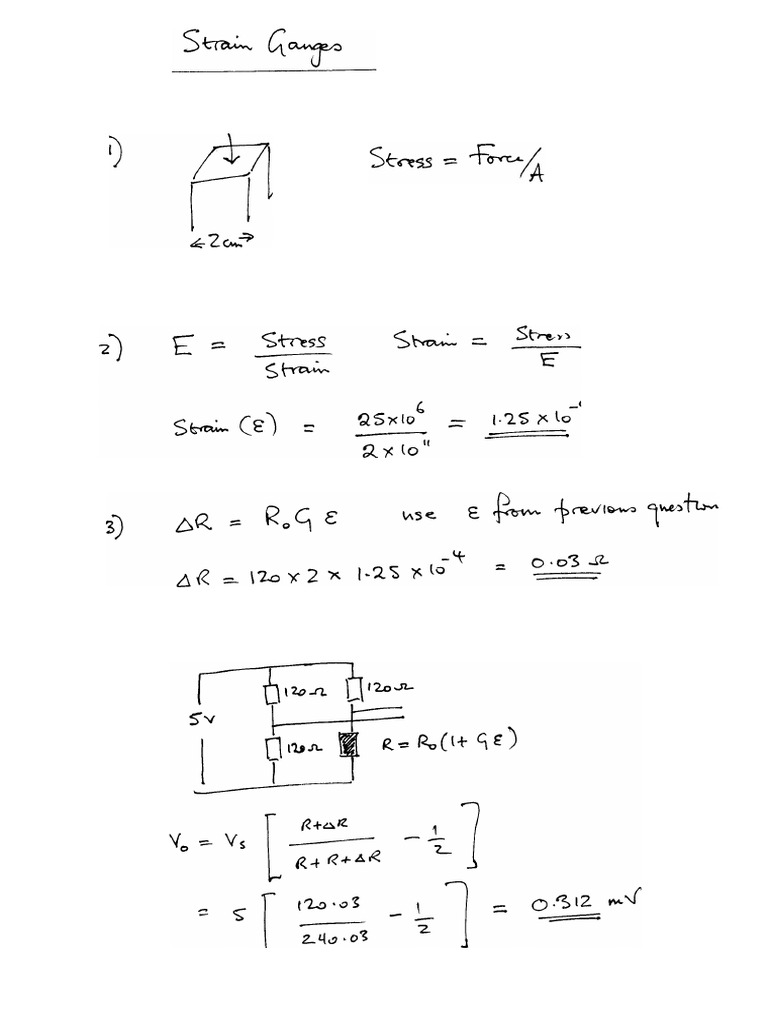 Strain Gauges
1)
Stress = Force/A
2 cm
2) E = Stress/Strain Strain = Stress/E
Strain (ε) = 25×10⁶/2×10¹¹ = 1.25 × 10⁻
3) ΔR = R₀ G ε use ε from previous question
ΔR = 120 × 2 × 1.25 × 10⁻⁴ = 0.03 Ω
120Ω 120Ω
5V
120Ω R = R₀(1 + Gε)
V₀ = Vs [ R+ΔR/R+R+ΔR − 1/2 ]
= 5 [ 120.03/240.03 − 1/2 ] = 0.312 mV